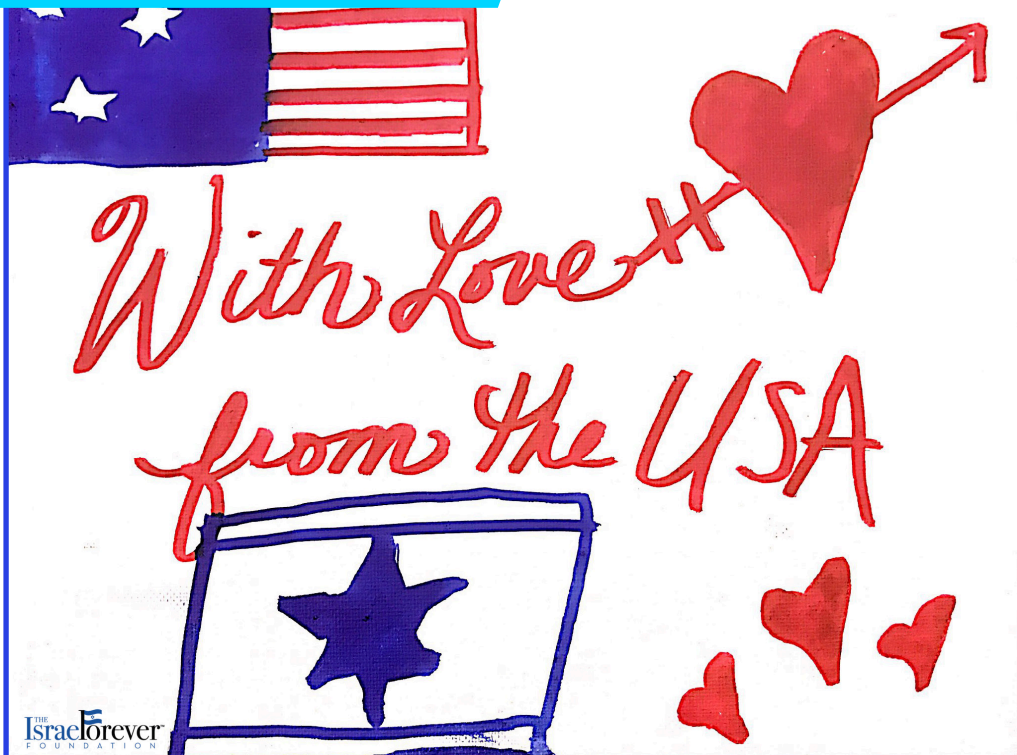 With Love
from the USA
THE
Israelforever
FOUNDATION